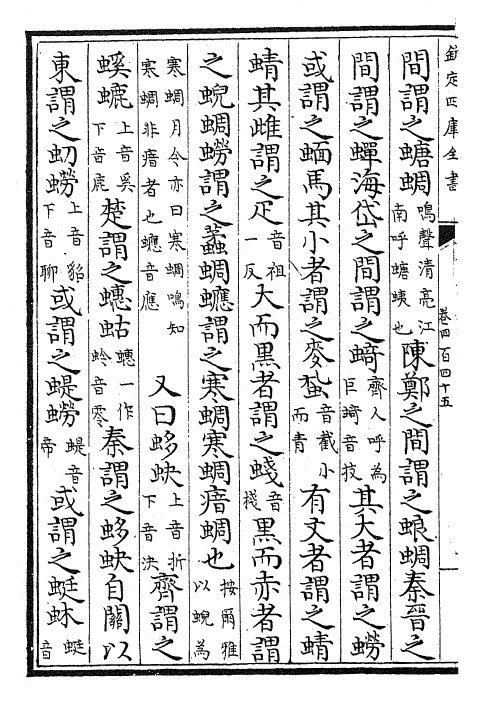 欽定四庫全書
卷四百四十五
間謂之螗蜩鳴聲清亮江南呼螗蛦也陳鄭之間謂之蜋蜩秦晉之
間謂之蟬海岱之間謂之䗁齊人呼為巨䗁音技其大者謂之蟧
或謂之蝒馬其小者謂之麥蚻音截小而青有文者謂之蜻
蜻其雌謂之疋音祖一反大而黑者謂之䗃音棧黑而赤者謂
之蜺蜩蟧謂之蜩𧕄謂之寒蜩寒蜩瘖蜩也按爾雅以蜺為
寒蜩月令亦曰寒蜩鳴知寒蜩非瘖者也𧕄音應又曰蛥蚗上音折下音決齊謂之
螇螰上音奚下音鹿楚謂之蟪蛄蟪一作蛉音零秦謂之蛥蚗自關以
東謂之虭蟧上音貂下音聊或謂之蝭蟧蝭音帝或謂之蜓蚞蜓音